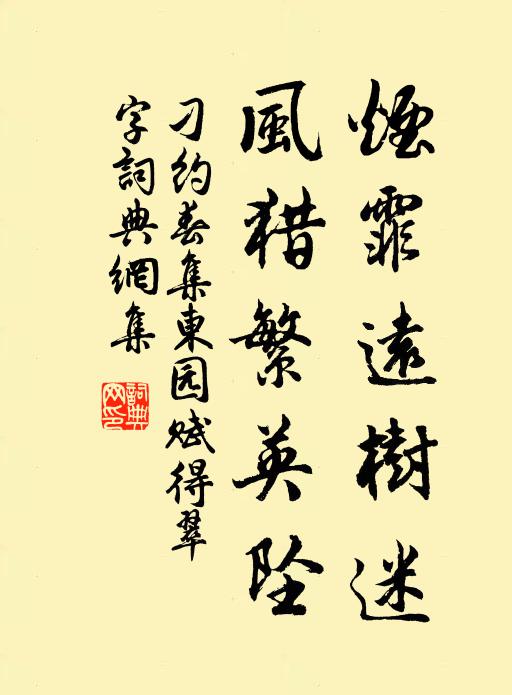 煙霏遠樹迷
風猎繁英墜
刁約春集東园赋得翠
字詞典網集
詞典
网印